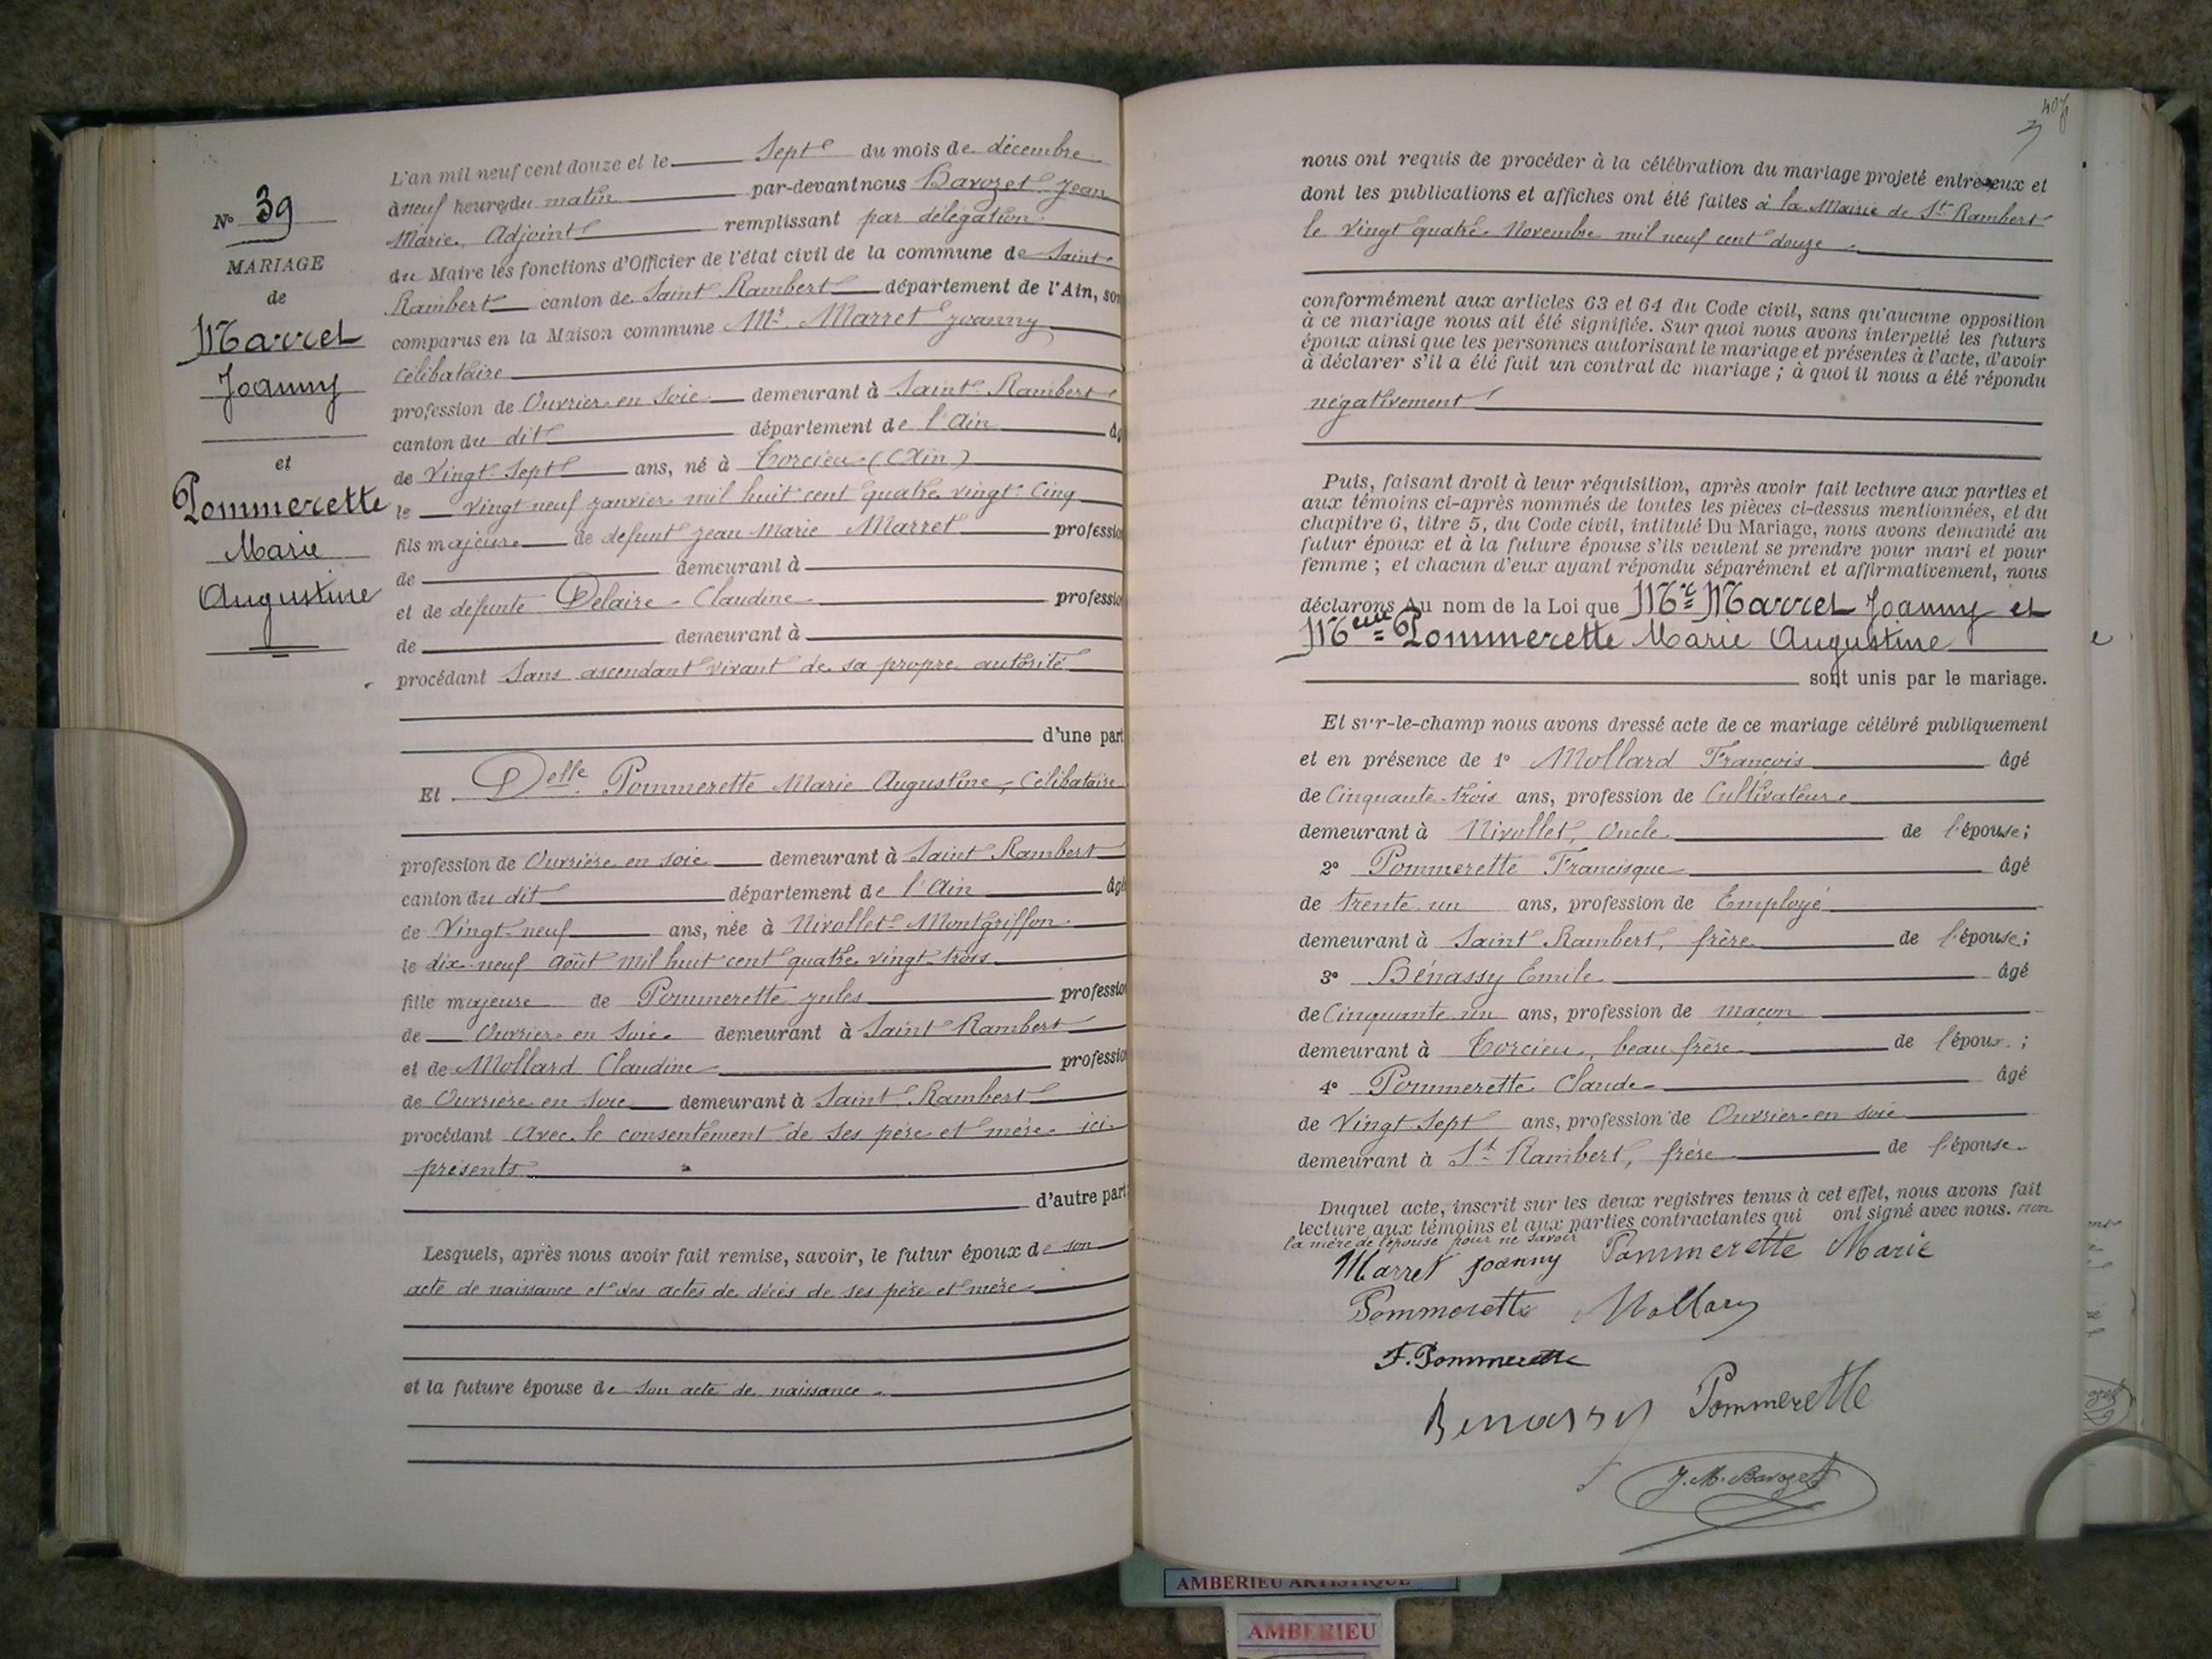 N° 39
MARIAGE
de
Marret
Joanny
et
Pommerette
Marie
Augustine
L'an mil neuf cent douze et le Sept du mois de décembre
à neuf heures du matin par-devant nous Bavozet Jean
Marie, Adjoint remplissant par délégation
du Maire les fonctions d'Officier de l'état civil de la commune de Saint
Rambert canton de Saint Rambert département de l'Ain, son
comparus en la Maison commune Mr. Marret Joanny
célibataire
profession de Ouvrier en soie demeurant à Saint Rambert
canton du dit département de l'Ain âg
de Vingt-Sept ans, né à Torcieu (Ain)
le vingt neuf janvier mil huit cent quatre vingt-cinq
fils majeur de défunt Jean Marie Marret professio
de demeurant à
et de défunte Delaire Claudine professio
de demeurant à
procédant Sans ascendant vivant de sa propre autorité
d'une part
Et Delle Pommerette Marie Augustine, Célibataire
profession de Ouvrière en soie demeurant à Saint Rambert
canton du dit département de l'Ain âgé
de Vingt-neuf ans, née à Nivollet-Montgriffon
le dix neuf Août mil huit cent quatre vingt-trois
fille majeure de Pommerette Jules professio
de Ouvrier en Soie demeurant à Saint Rambert
et de Mollard Claudine professio
de Ouvrière en soie demeurant à Saint Rambert
procédant Avec le consentement de ses père et mère ici
présents
d'autre part
Lesquels, après nous avoir fait remise, savoir, le futur époux de son
acte de naissance et des actes de décès de ses père et mère
et la future épouse de son acte de naissance
407
nous ont requis de procéder à la célébration du mariage projeté entre eux et
dont les publications et affiches ont été faites à la Mairie de St Rambert
le vingt quatre Novembre mil neuf cent douze
conformément aux articles 63 et 64 du Code civil, sans qu'aucune opposition
à ce mariage nous ait été signifiée. Sur quoi nous avons interpellé les futurs
époux ainsi que les personnes autorisant le mariage et présentes à l'acte, d'avoir
à déclarer s'il a été fait un contrat de mariage ; à quoi il nous a été répondu
négativement
Puis, faisant droit à leur réquisition, après avoir fait lecture aux parties et
aux témoins ci-après nommés de toutes les pièces ci-dessus mentionnées, et du
chapitre 6, titre 5, du Code civil, intitulé Du Mariage, nous avons demandé au
futur époux et à la future épouse s'ils veulent se prendre pour mari et pour
femme ; et chacun d'eux ayant répondu séparément et affirmativement, nous
déclarons Au nom de la Loi que Mr Marret Joanny et
Melle Pommerette Marie Augustine
sont unis par le mariage.
Et sur-le-champ nous avons dressé acte de ce mariage célébré publiquement
et en présence de 1° Mollard François âgé
de Cinquante-trois ans, profession de Cultivateur
demeurant à Nivollet, Oncle de l'épouse ;
2° Pommerette Francisque âgé
de trente un ans, profession de Employé
demeurant à Saint Rambert, frère de l'épouse ;
3° Bénassy Emile âgé
de Cinquante un ans, profession de maçon
demeurant à Torcieu, beau frère de l'époux ;
4° Pommerette Claude âgé
de Vingt Sept ans, profession de Ouvrier en soie
demeurant à St Rambert, frère de l'épouse
Duquel acte, inscrit sur les deux registres tenus à cet effet, nous avons fait
lecture aux témoins et aux parties contractantes qui ont signé avec nous. non
la mère de l'épouse pour ne savoir
Marret Joanny Pommerette Marie
Pommerette Mollard
F. Pommerette
Benassy Pommerette
J. M. Bavozet
AMBERIEU ARTISTIQUE
AMBERIEU